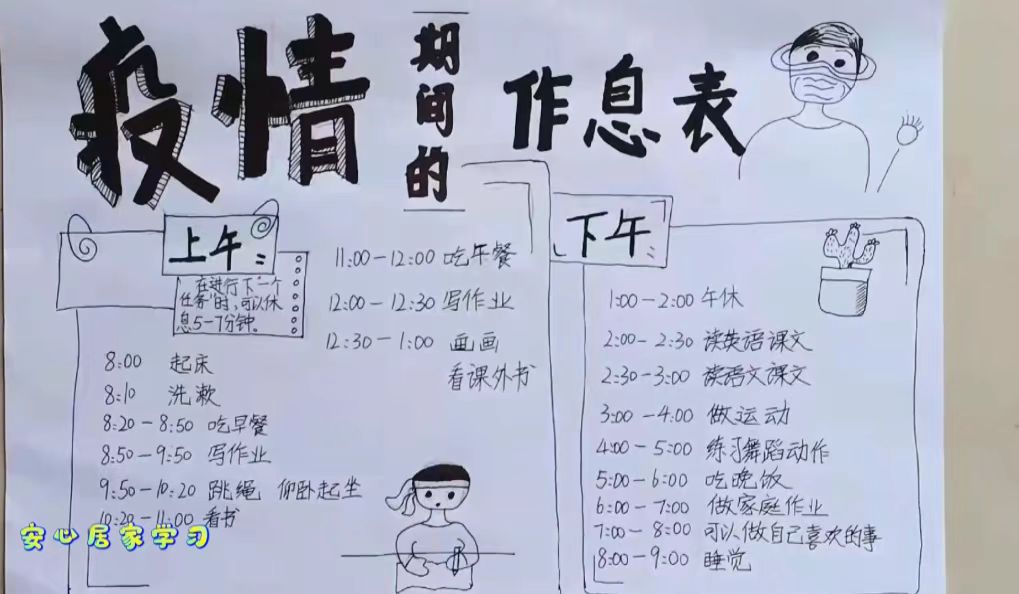 疫情期间的作息表
上午
在进行下一个
任务时，可以休
息5-7分钟。
8:00 起床
8:10 洗漱
8:20-8:50 吃早餐
8:50-9:50 写作业
9:50-10:20 跳绳 仰卧起坐
10:20-11:00 看书
11:00-12:00 吃午餐
12:00-12:30 写作业
12:30-1:00 画画
看课外书
下午
1:00-2:00 午休
2:00-2:30 读英语课文
2:30-3:00 读语文课文
3:00-4:00 做运动
4:00-5:00 练习舞蹈动作
5:00-6:00 吃晚饭
6:00-7:00 做家庭作业
7:00-8:00 可以做自己喜欢的事
8:00-9:00 睡觉
安心居家学习